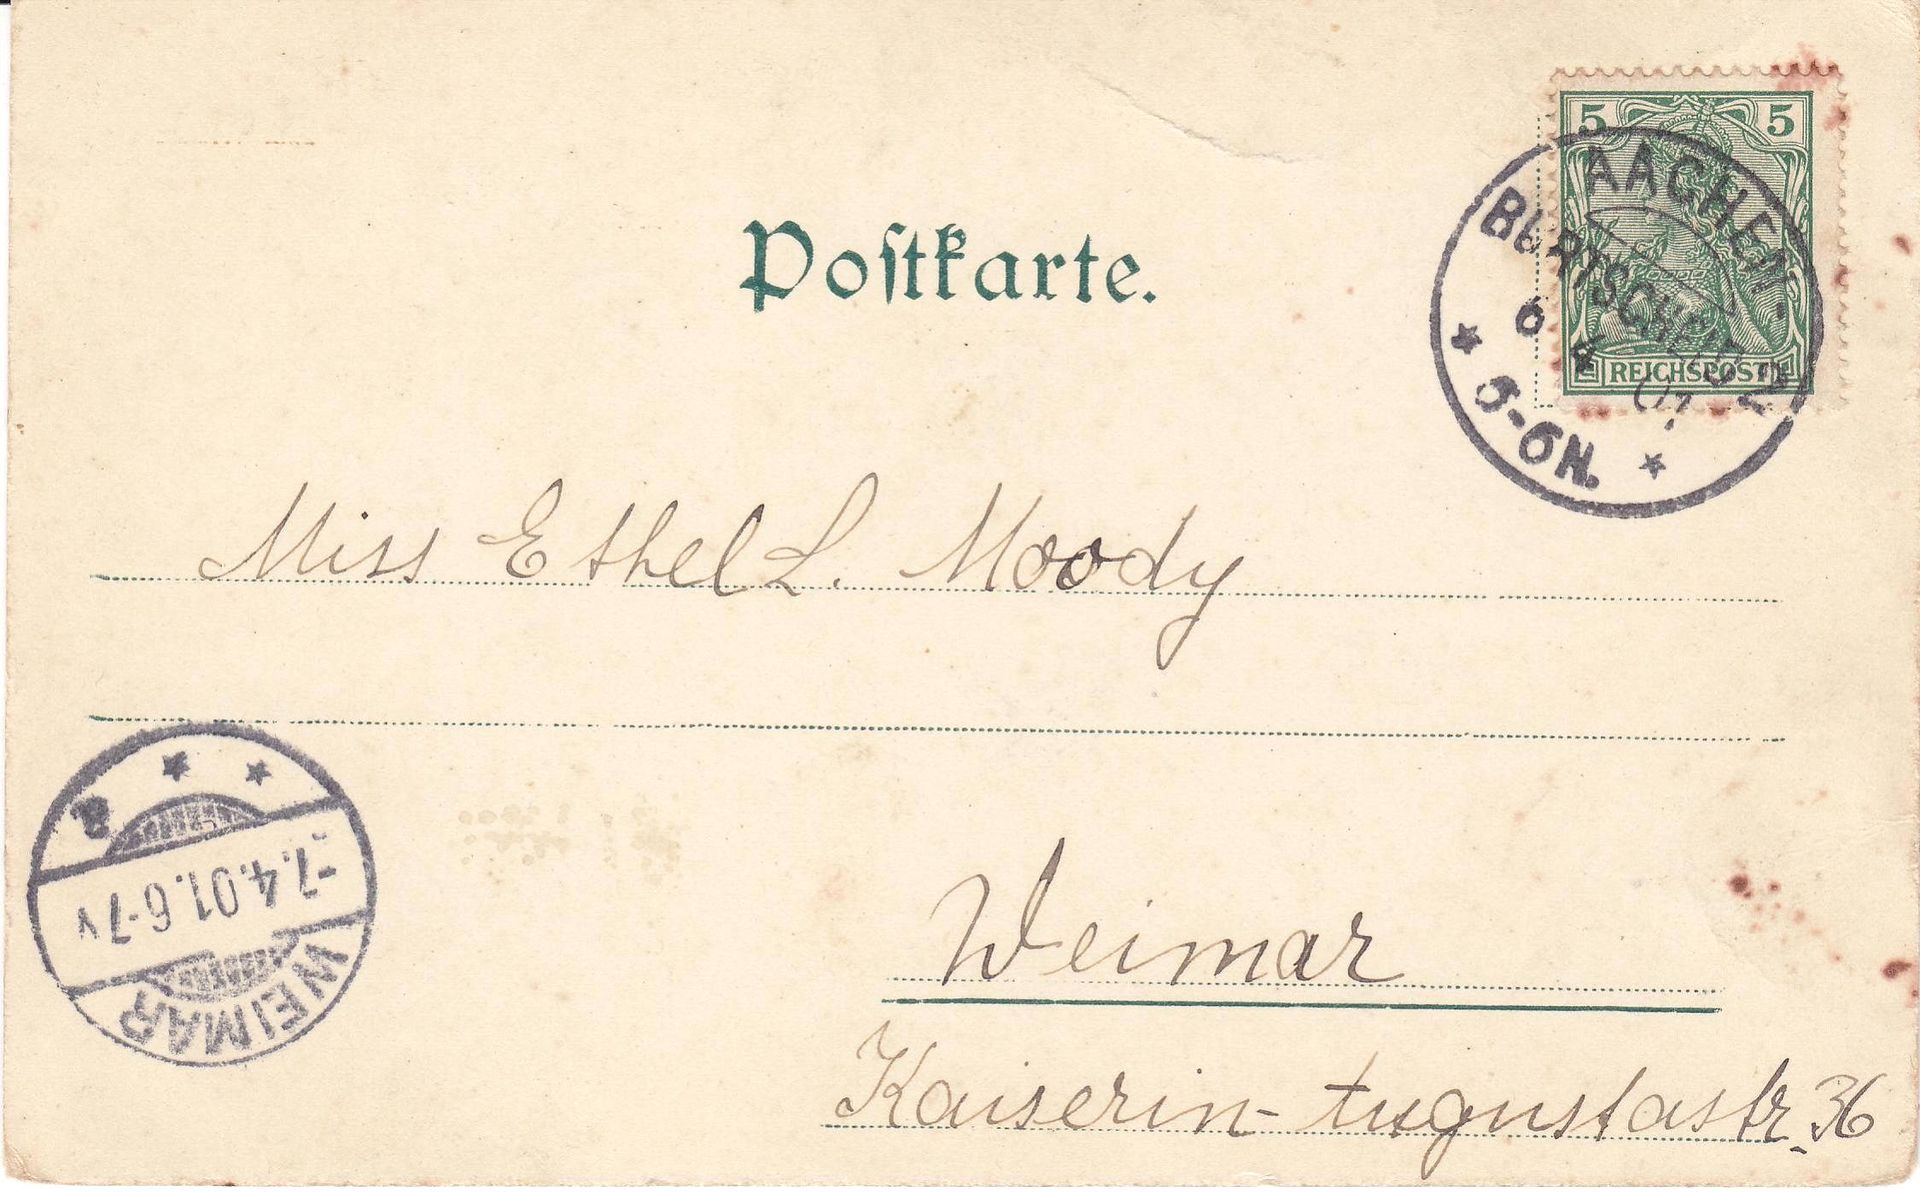 5 5
REICHSPOST
AACHEN-
BURTSCHEID 2
6 4 01.
5-6N.
Poſtkarte.
Miss Ethel L. Moody
Weimar
Kaiserin-Augustastr. 36
WEIMAR
-7.4.01.6-7V
a